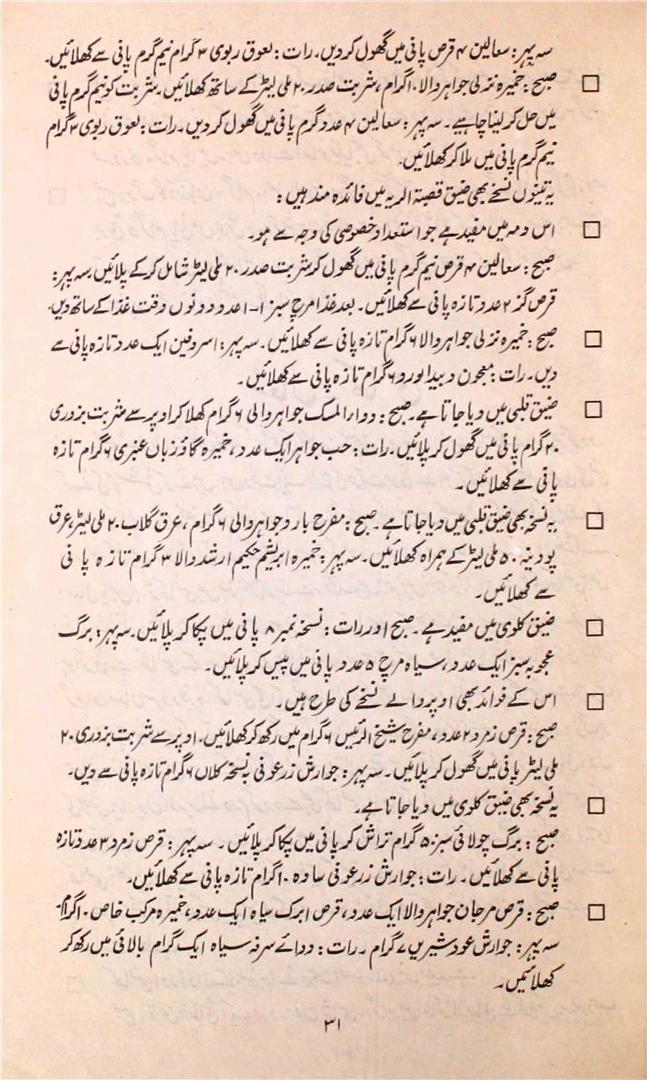 سہ پہر: سعالین ۴ قرص پانی میں گھول کر دیں۔ رات: لعوق ربوی ۳ گرام نیم گرم پانی سے کھلائیں۔
□ صبح: خمیرہ نزلی جواہر والا ۱۰ گرام، شربت صدر ۲۰ ملی لیٹر کے ساتھ کھلائیں۔ شربت کو نیم گرم پانی
میں حل کر لینا چاہیے۔ سہ پہر: سعالین ۴ عدد گرم پانی میں گھول کر دیں۔ رات: لعوق ربوی ۳ گرام
نیم گرم پانی میں ملا کر کھلائیں۔
یہ تینوں نسخے بھی ضیق قصبۃ الریہ میں فائدہ مند ہیں:
□ اس دمہ میں مفید ہے جو استعداد خصوصی کی وجہ سے ہو۔
صبح: سعالین ۴ قرص نیم گرم پانی میں گھول کر شربت صدر ۲۰ ملی لیٹر شامل کر کے پلائیں۔ سہ پہر:
قرص گز ۲ عدد تازہ پانی سے کھلائیں۔ بعد غذا مرچ سبز ۱-۱ عدد دونوں وقت غذا کے ساتھ دیں۔
□ صبح: خمیرہ نزلی جواہر والا ۶ گرام تازہ پانی سے کھلائیں۔ سہ پہر: اسروفین ایک عدد تازہ پانی سے
دیں۔ رات: معجون دبید الورد ۶ گرام تازہ پانی سے کھلائیں۔
□ ضیق قلبی میں دیا جاتا ہے۔ صبح: دوا المسک جواہر والی ۶ گرام کھلا کر اوپر سے شربت بزوری
۲۰ گرام پانی میں گھول کر پلائیں۔ رات: حب جواہر ایک عدد، خمیرہ گاؤزباں عنبری ۶ گرام تازہ
پانی سے کھلائیں۔
□ یہ نسخہ بھی ضیق قلبی میں دیا جاتا ہے۔ صبح: مفرح بارد جواہر والی ۶ گرام، عرق گلاب ۲۰ ملی لیٹر، عرق
پودینہ ۵۰ ملی لیٹر کے ہمراہ کھلائیں۔ سہ پہر: خمیرہ ابریشم حکیم ارشد والا ۳ گرام تازہ پانی
سے کھلائیں۔
□ ضیق کلوی میں مفید ہے۔ صبح اور رات: نسخہ نمبر ۸ پانی میں پکا کر پلائیں۔ سہ پہر: برگ
عجوبہ سبز ایک عدد، سیاہ مرچ ۵ عدد پانی میں پیس کر پلائیں۔
□ اس کے فوائد بھی اوپر والے نسخے کی طرح ہیں۔
صبح: قرص زمرد ۲ عدد، مفرح شیخ الرئیس ۶ گرام میں رکھ کر کھلائیں۔ اوپر سے شربت بزوری ۲۰
ملی لیٹر پانی میں گھول کر پلائیں۔ سہ پہر: جوارش زرعونی بہ نسخہ کلاں ۶ گرام تازہ پانی سے دیں۔
□ یہ نسخہ بھی ضیق کلوی میں دیا جاتا ہے۔
صبح: برگ چولائی سبز ۵۰ گرام تراش کر پانی میں پکا کر پلائیں۔ سہ پہر: قرص زمرد ۳ عدد تازہ
پانی سے کھلائیں۔ رات: جوارش زرعونی سادہ ۱۰ گرام تازہ پانی سے کھلائیں۔
□ صبح: قرص مرجان جواہر والا ایک عدد، قرص ابرک سیاہ ایک عدد، خمیرہ مرکب خاص ۱۰ گرام۔
سہ پہر: جوارش عود شیریں ۷ گرام۔ رات: دوائے سرفہ سیاہ ایک گرام بالائی میں رکھ کر
کھلائیں۔
۳۱